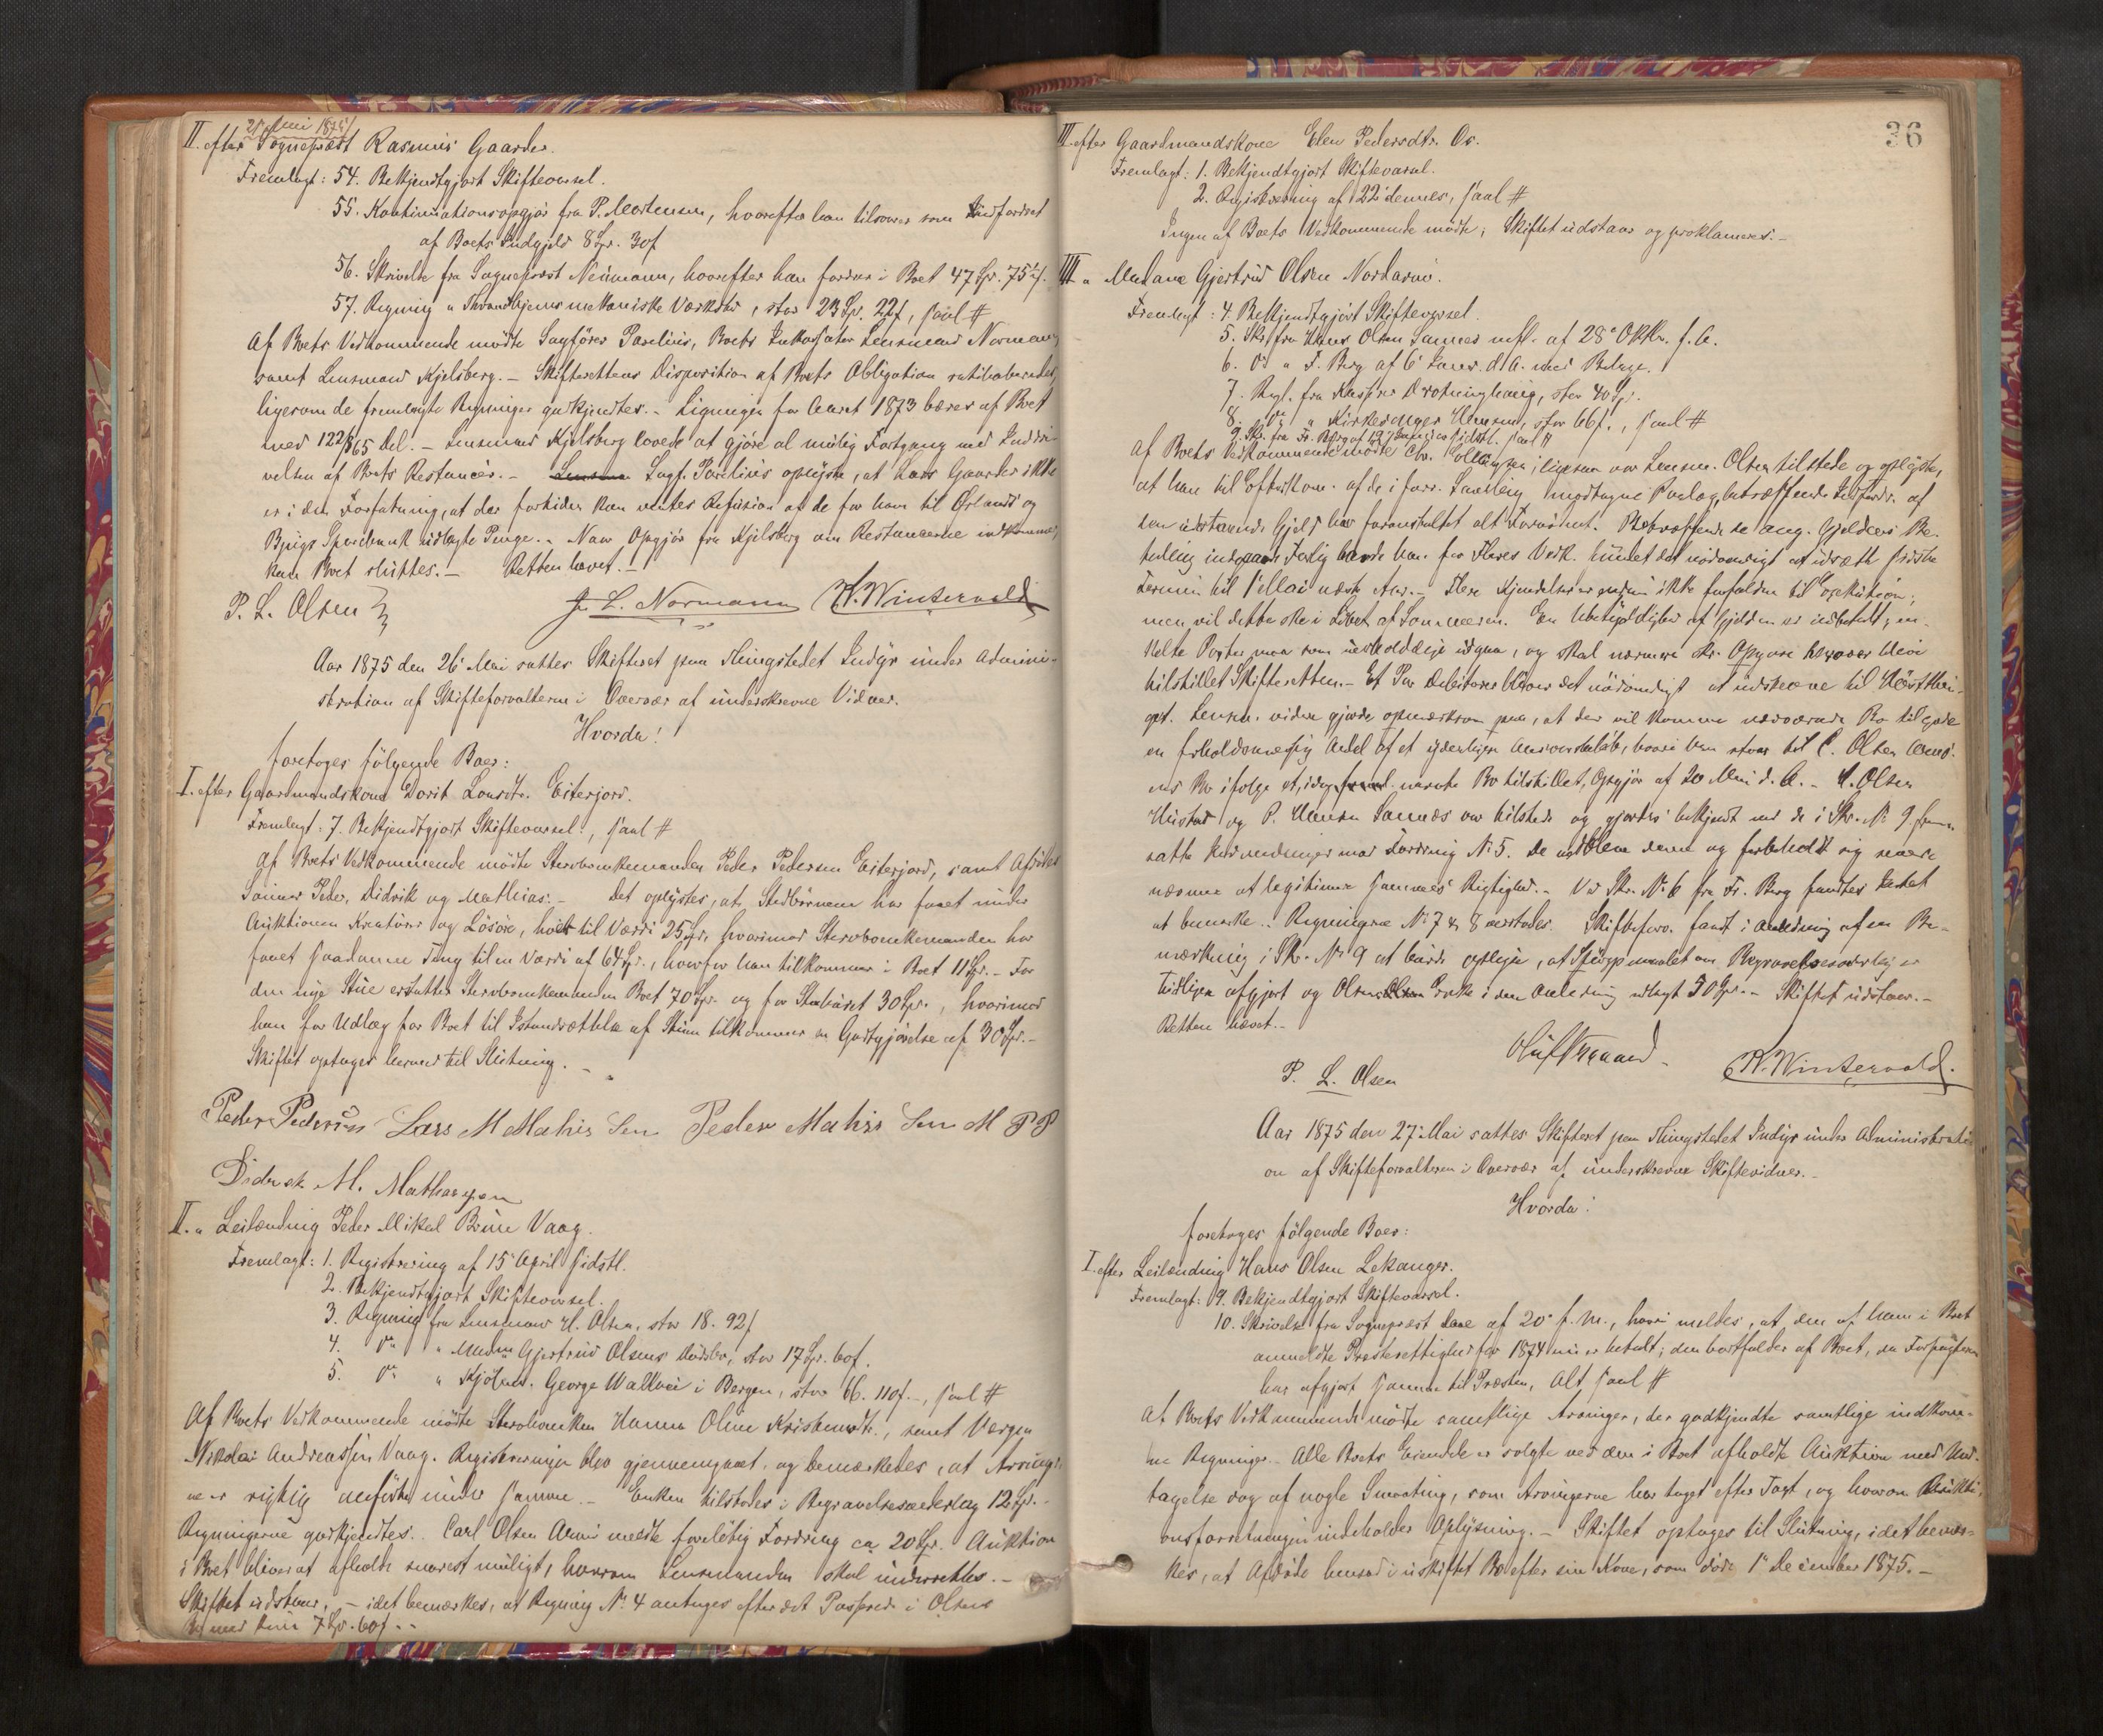 21 Mai 1875
II. efter Sognepræst Rasmus Gaarder.
Fremlagt: 54. Bekjendtgjort Skiftevarsel.
55. Kontinuationsopgjør fra P. Mortensen, hvorefter han tilsvarer som indfordret
af Boets Indgjeld 8 Spd. 30 ſ
56. Skrivelse fra Sognepræst Neumann, hvorefter han fordrer i Boet 47 Spd. 75 ſ.
57. Regning " Throndhjems mekaniske Værksted, stor 23 Spd. 22 ſ, saal. #
Af Boets Vedkommende mødte Sagfører Parelius, Boets Inkassator Lensmand Normann
samt Lensmand Kjelsberg. - Skifterettens Disposition af Boets Obligation ratihaberedes,
ligesom de fremlagte Regninger godkjendtes. - Ligningen for Aaret 1873 bæres af Boet
med 122/365 Del. - Lensmand Kjelsberg lovede at gjøre al mulig Fortgang med Inddri-
velsen af Boets Restancer. - Sagf. Parelius oplyste, at Gaarder ikke
er i den Forfatning, at der fortiden kan ventes Refusion af de for ham til Ørlands og
Bjugns Sparebank udlagte Penge. - Naar Opgjør fra Kjelsberg om Restancerne indkommer,
kan Boet sluttes. - Retten hævet. -
P. L. Olsen J. L. Normann K. Wintervold
Aar 1875 den 26 Mai sattes Skifteret paa Thingstedet Indyr under Admini-
stration af Skifteforvalteren i Overvær af underskrevne Vidner.
Hvorda!
foretoges følgende Boer:
I. efter Gaardmandskone Dorit Larsdtr. Eiterjord.
Fremlagt: 7. Bekjendtgjort Skiftevarsel., saal. #
Af Boets Vedkommende mødte Stervboenkemanden Peder Pedersen Eiterjord, samt Afdødes
Sønner Peder, Didrik og Mathias. - Det oplystes, at Stedbørnene har faaet under
Auktionen Kreaturer og Løsøre, holdt til Værdi 25 Spd., hvorimod Stervboenkemanden har
faaet saadanne Ting til en Værdi af 64 Spd., hvorfor han tilkommer i Boet 11 Spd. - For
den nye Stue erstatter Stervboenkemanden Boet 70 Spd. og for Stabburet 30 Spd., hvorimod
han for Udlæg for Boet til Istandsættelse af Stuen tilkommer en Godtgjørelse af 30 Spd. -
Skiftet optages hermed til Slutning. -
Peder Pedersen Lars M Mathis Sen Peder Mathis Sen M P P
Didrik M. Mathiasen
II. " Leilænding Peder Mikal Brun Vaag.
Fremlagt: 1. Registrering af 15 April sidstl.
2. Bekjendtgjort Skiftevarsel.
3. Regning fra Lensmand H. Olsen, stor 18. 92 ſ
4. do " Madm Gjertrud Olsens Dødsbo, stor 17 Spd. 60 ſ.
5. do " Kjøbm. George Wallace i Bergen, stor 66. 110 ſ., saal #
Af Boets Vedkommende mødte Stervboenken Hanna Oline Kristensdtr., samt Værgen
Nikolai Andreassen Vaag. Registreringen blev gjennemgaaet, og bemærkedes, at Arvinger-
ne er rigtig anført under samme. - Enken tilstodes i Begravelsesvederlag 12 Spd. -
Regningerne godkjendtes. Carl Olsen Arnø meldte foreløbig Fordring ca 20 Spd. Auktion
i Boet bliver at afholde snarest muligt, hvorom Lensmanden skal underrettes. -
Skiftet udstaar, - idet bemærkes, at Regning No 4 antages efter det Passerede i Olsens
Bo med kun 7 Spd. 60 ſ. -
36
III. efter Gaardmandskone Elen Pedersdtr. Os.
Fremlagt: 1. Bekjendtgjort Skiftevarsel.
2. Registrering af 22 dennes, saal #
Ingen af Boets Vedkommende mødte; Skiftet udstaar og proklameres. -
IIII. " Madame Gjertrud Olsen Nordarnø.
Fremlagt: 4. Bekjendtgjort Skiftevarsel.
5. Skr. fra Hans Olsen Sannes mfl. af 28 Oktbr. f. A.
6. do " F. Berg af 6 Janr. d. A. med Bilage.
7. Regn. fra Kasper Drotninghaug, stor 40 Spd.
8. do " Kirkesanger Hansen, stor 66 ſ., saal #
9. Skr. fra Fr. Berg af 12 sidstl. saal #
Af Boets Vedkommende mødte Chr. Ellingsen, ligesom var Lensm. Olsen tilstede og oplyste,
at han til Efterkom. af de i forr. Samling modtagne Paalæg betræffende Indfordr. af
den udestaaende Gjeld har foranstaltet alt Fornødent. Betræffende ang. Gjeldens Be-
taling havde han for Fleres Vedk. fundet det nødvendigt at udsætte sidste
Termin til 1 Mai næste Aar. - Flere Kjendelser er endnu ikke forfaldne til Exekution;
men vil dette ske i Løbet af Sommeren. En Ubetydelighed af Gjelden er indbetalt; en-
kelte Poster maa som uerholdelige udgaa, og skal nærmere Opgave herover blive
tilstillet Skifteretten. - Et Par Debitorer bliver det nødvendigt at indstevne til Høstthin-
get. Lensm. videre gjorde opmærksom paa, at der vil komme nærværende Bo tilgode
en forholdsmæssig Andel af et yderligere Ansvarsbeløb, hvori han svarer til C. Olsen Arnøs
Bo ifølge et, idag nævnte Bo tilstillet, Opgjør af 20 Mai d. A. - H. Olsen
Hustad og P. Hansen Sannes var tilstede og gjordes bekjendt med de i Skr. No 9 frem-
satte Indvendinger mod Fordring No 5. De vedblev denne og forbeholdt sig senere
nærmere at legitimere sammes Rigtighed. - Ved Skr. No 6 fra Fr. Berg fandtes Intet
at bemærke. - Regningerne No 7 & 8 tilstodes. Skifteforv. fandt i Anledning af en Be-
mærkning i Skr. No 9 at burde oplyse, at Spørgsmaalet om Begravelsesvederlag er
tidligere afgjort og Olsens Enke i den Anledning udlagt 50 Spd. - Skiftet udstaar. -
Retten hævet. -
P. L. Olsen K. Wintervold.
Aar 1875 den 27 Mai sattes Skifteret paa Thingstedet Indyr under Administrati-
on af Skifteforvalteren i Overvær af underskrevne Skiftevidner. -
Hvorda!
foretoges følgende Boer:
I. efter Leilænding Hans Olsen Lekanger.
Fremlagt: 9. Bekjendtgjort Skiftevarsel.
10. Skrivelse fra Sognepræst af 20 f. M., hvori meldes, at den af ham i Boet
anmeldte Presterettighed for 1874 nu er betalt; den bortfalder af Boet, da Forpagteren
har afgjort samme til Præsten, Alt saal #
Af Boets Vedkommende mødte samtlige Arvinger, der godkjendte samtlige indkom-
ne Regninger. - Alle Boets Eiendele er solgte ved den i Boet afholdte Auktion med Und-
tagelse dog af nogle Smaating, som Arvingerne har taget efter Taxt, og hvorom Aukti-
onsforretningen indeholder Oplysning. - Skiftet optages til Slutning, idet bemær-
kes, at Afdøde hensad i uskiftet Bo efter sin Kone, som døde 1 December 1875. -